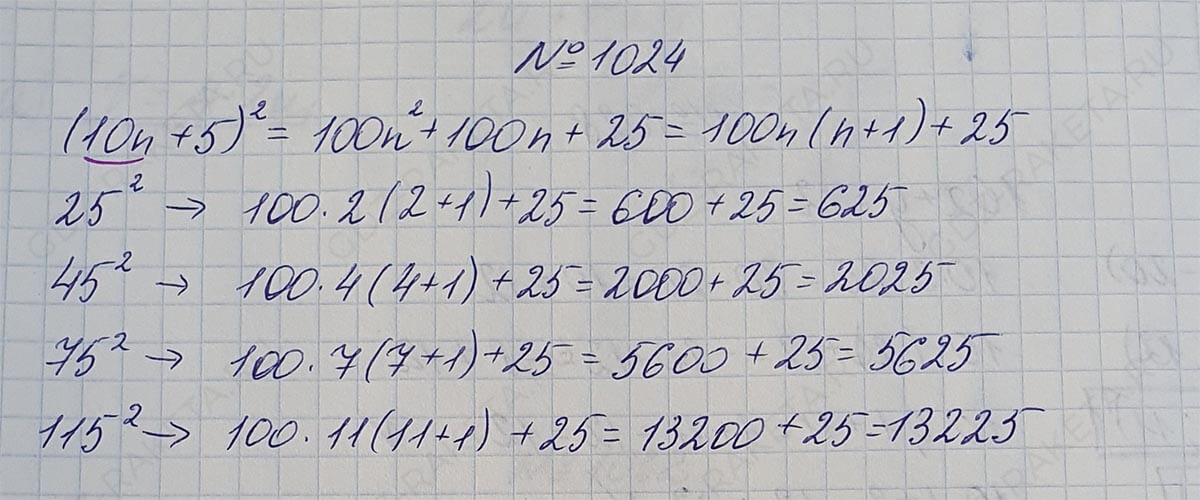 № 1024
(10n + 5)² = 100n² + 100n + 25 = 100n (n+1) + 25
25² → 100 · 2 (2+1) + 25 = 600 + 25 = 625
45² → 100 · 4 (4+1) + 25 = 2000 + 25 = 2025
75² → 100 · 7 (7+1) + 25 = 5600 + 25 = 5625
115² → 100 · 11 (11+1) + 25 = 13200 + 25 = 13225